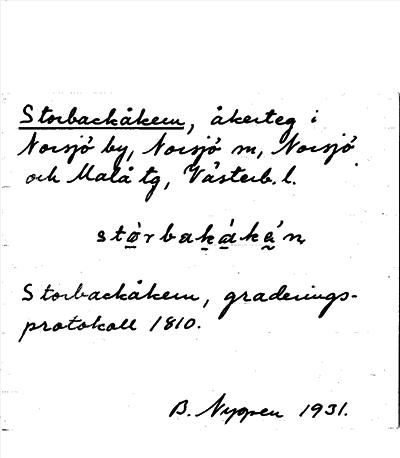 Storbackåkern, åkerteg i
Norsjö by, Norsjö sn, Norsjö
och Malå tg, Västerb. l.
Storbackåkern, graderings-
protokoll 1810.
1931.